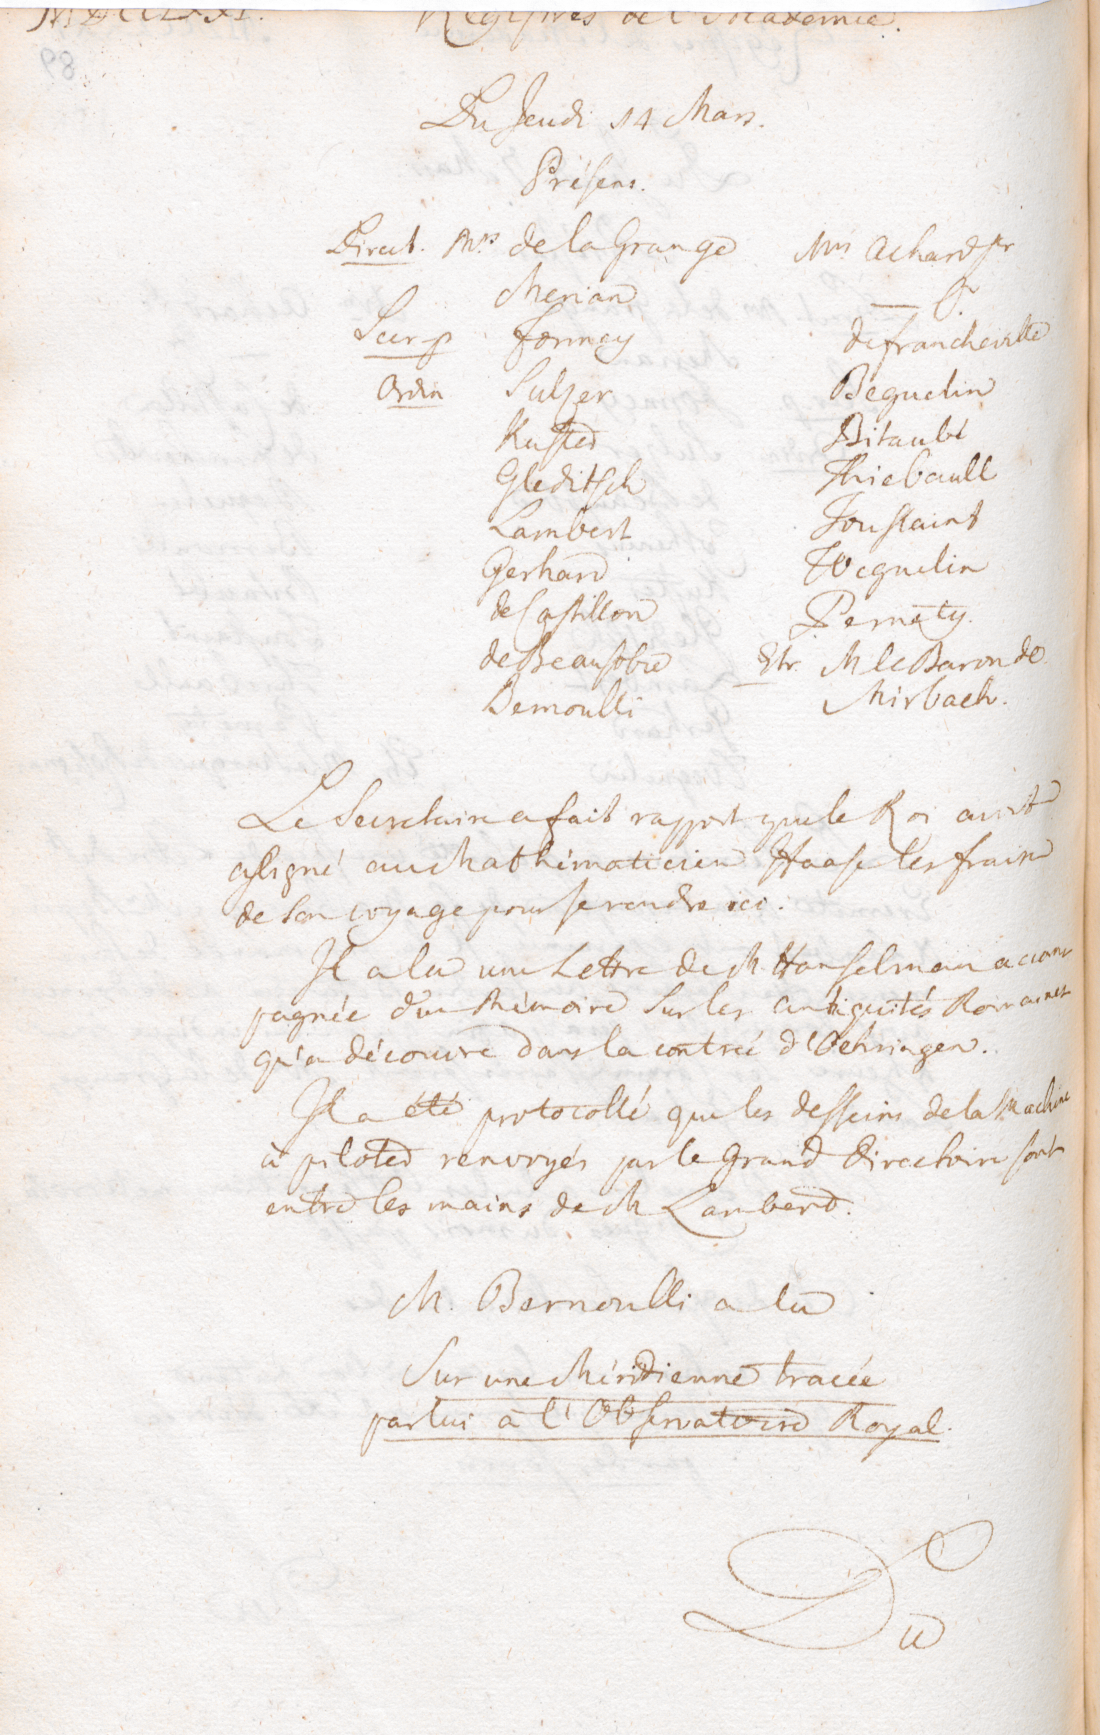 MDCCLXXI. Registres de l'Academie.
Du Jeudi 14 Mars.
Présens.
Direct. Mrs de la Grange
Merian
Secr. p. Formey
Ordin Sulzer
Kuster
Gleditsch
Lambert
Gerhard
de Castillon
de Beausobre
Bernoulli
Mrs Achard Pr
de Francheville
Beguelin
Bitaubé
Thiebault
Toussaint
Weguelin
Pernety.
Etr. M le Baron de
Mirbach.
Le Secretaire a fait rapport que le Roi avoit
assigné au Mathématicien Haase les frais
de son voyage pour se rendre ici.
Il a lu une Lettre de M. Hanselman accom
pagnée d'un Mémoire sur les antiquités Romaines
qu'a découvre dans la contrée d'Oehringen.
Il a été protocollé que les desseins de la Machine
à piloter renvoyés par le Grand Directoire sont
entre les mains de M Lambert.
M. Bernoulli a lu
Sur une Méridienne tracée
par lui à l'Observatoire Royal.
Du